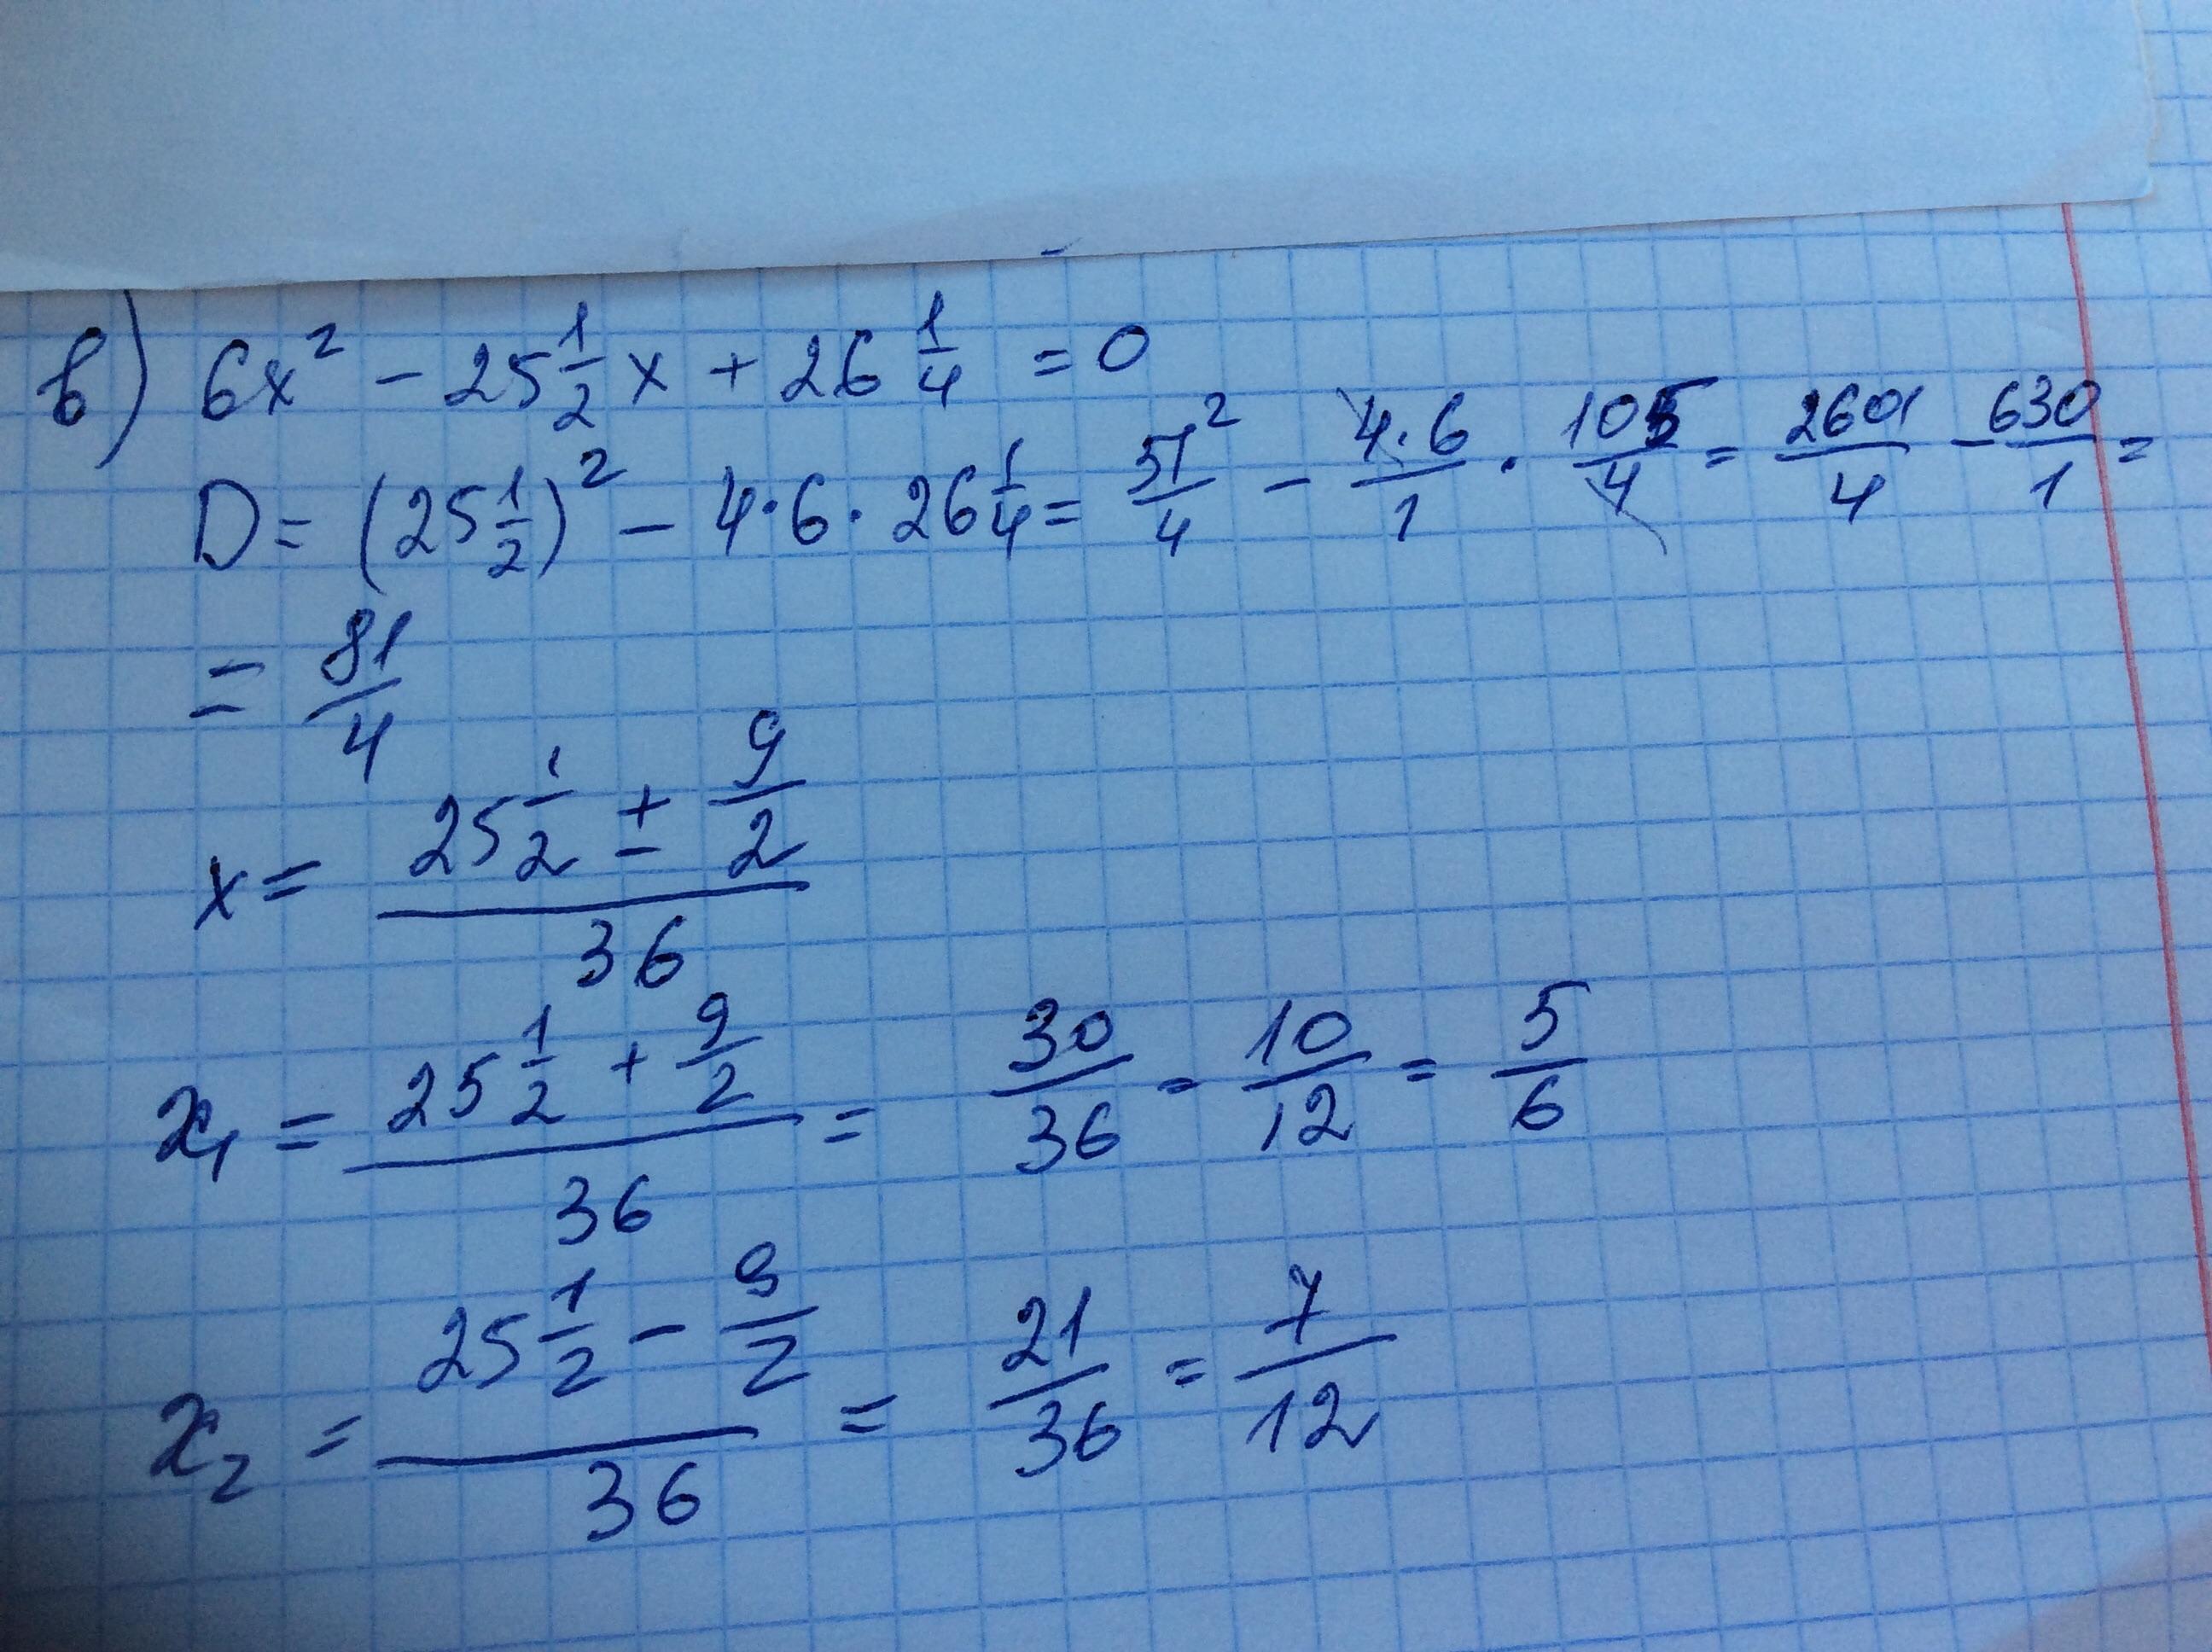 в) 6x² − 25 1/2 x + 26 1/4 = 0
D = (25 1/2)² − 4·6·26 1/4 = 51²/4 − 4·6/1 · 105/4 = 2601/4 − 630/1 =
= 81/4
x = (25 1/2 ± 9/2)/36
x₁ = (25 1/2 + 9/2)/36 = 30/36 = 10/12 = 5/6
x₂ = (25 1/2 − 9/2)/36 = 21/36 = 7/12